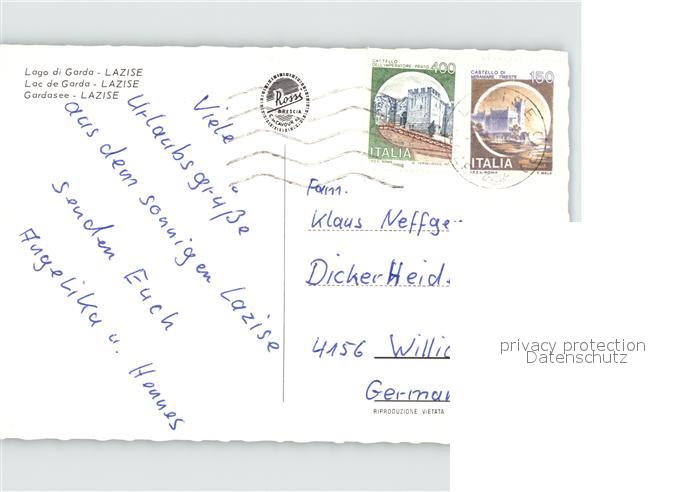 Lago di Garda - LAZISE
Lac de Garda - LAZISE
Gardasee - LAZISE
Viele
Urlaubsgrüße
aus dem sonnigen Lazise
senden Euch
Angelika u. Hannes
Rossi
BRESCIA
CASTELLO
DELL'IMPERATORE - PRATO
400
ITALIA
CASTELLO DI
MIRAMARE - TRIESTE
150
ITALIA
I.P.Z.S. ROMA
Fam.
Klaus Neffge
Dicker Heid
4156 Willic
German
RIPRODUZIONE VIETATA
privacy protection
Datenschutz